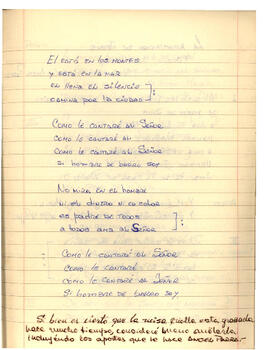 EL ESTÁ EN LOS MONTES
Y ESTÁ EN LA MAR
EL LLENA EL SILENCIO
CAMINA POR LA CIUDAD
COMO LE CANTARÉ AL SEÑOR
COMO LE CANTARÉ
COMO LE CANTARÉ AL SEÑOR
SI HOMBRE DE BARRO SOY
NO MIRA EN EL HOMBRE
NI EL DINERO NI COLOR
ES PADRE DE TODOS
A TODOS AMA EL SEÑOR
COMO LE CANTARÉ AL SEÑOR
COMO LE CANTARÉ
COMO LE CANTARÉ AL SEÑOR
SI HOMBRE DE BARRO SOY
Si bien es cierto que la misa quella esta grabada
hace mucho tiempo, considero bueno
incluyendo los aportes que le hace ANGEL PARRA.